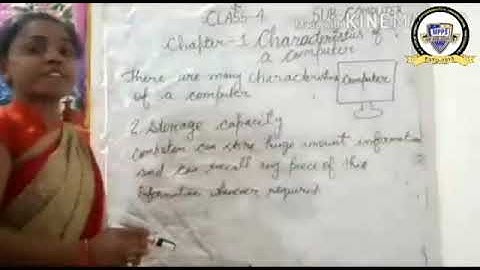 CLASS-4 SUB-COMPUTER
KINEMA
Chapter-1 Characteristics of a computer
There are many characteristics of a computer
Computer
2. Storage capacity
computers can store huge amount information
and can recall any piece of this
information whenever required